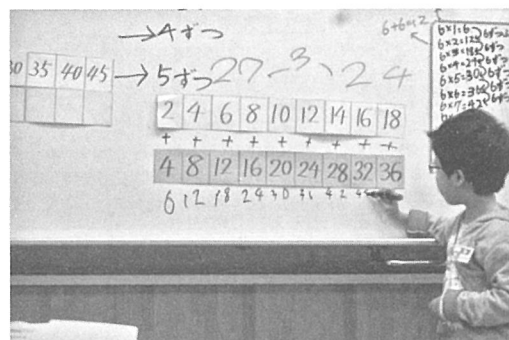 →4ずつ
30 35 40 45 →5ずつ
27 3、24
2 4 6 8 10 12 14 16 18
+ + + + + + + + +
4 8 12 16 20 24 28 32 36
6 12 18 24 30 36 42
6+6=12
6×1=6
6×2=12
6×3=18
6×4=24 6ずつ
6×5=30 6ずつ
6×6=36 6ずつ
6×7=42 6ずつ